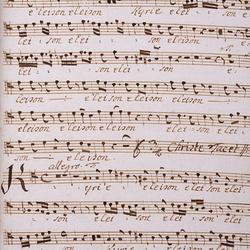 eleison eleison Kyrie elei son elei
lei son elei son eleison
lei son elei son elei
eleison eleison eleison eleison
eleison eleison eleison elei son elei
son eleison Christe tacet
allegro
Kyrie elei son eleison elei
son elei son elei son
son eleison